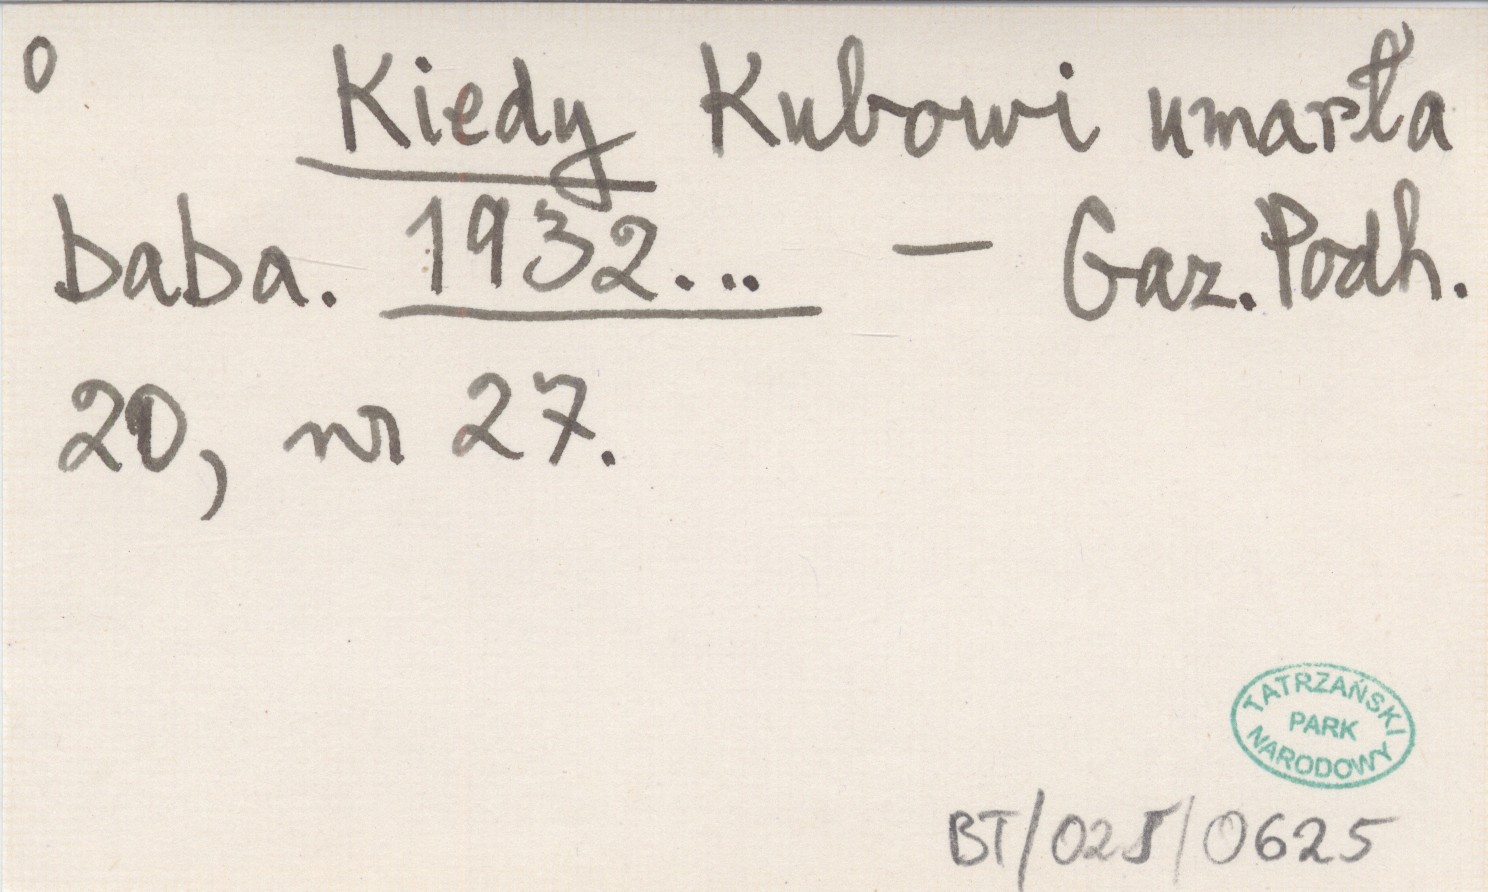 o Kiedy Kubowi umarła
baba. 1932... — Gaz. Podh.
20, nr 27.
TATRZAŃSKI
PARK
NARODOWY
BT/025/0625